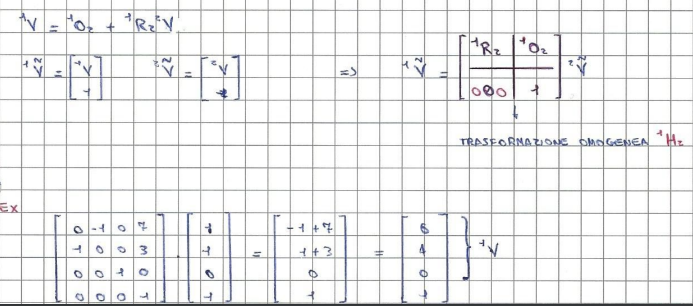 ¹V = ¹O₂ + ¹R₂ ²V
¹Ṽ = [¹V; 1]   ²Ṽ = [²V; 1]   =>   ¹Ṽ = [¹R₂ | ¹O₂; 000 | 1] ²Ṽ
TRASFORMAZIONE OMOGENEA ¹H₂
EX
[0 -1 0 7; 1 0 0 3; 0 0 1 0; 0 0 0 1] · [1; 1; 0; 1] = [-1+7; 1+3; 0; 1] = [6; 4; 0; 1] } ¹V